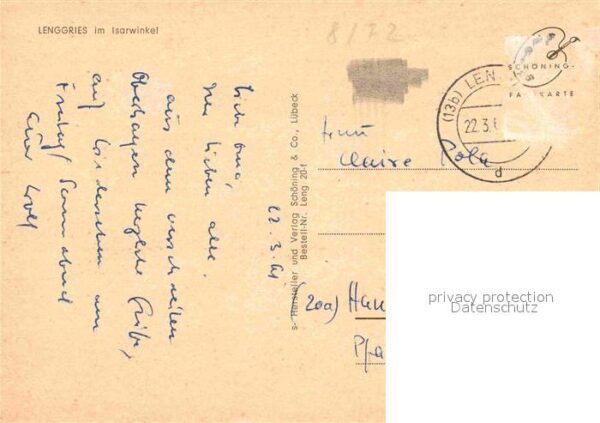 LENGGRIES im Isarwinkel
8/72
SCHÖNING-
FARBKARTE
(13b) LEN
22.3.6
d
22.3.61
Liebe Oma,
Ihr Lieben alle.
aus dem verschneiten
herzliche Grüße,
auf Wiedersehen am
Freitag/Sonnabend
Euer
s- Hersteller und Verlag Schöning & Co., Lübeck
Bestell-Nr. Leng 20-f
Frau
Claire
(20a) Han
Pfa
privacy protection
Datenschutz